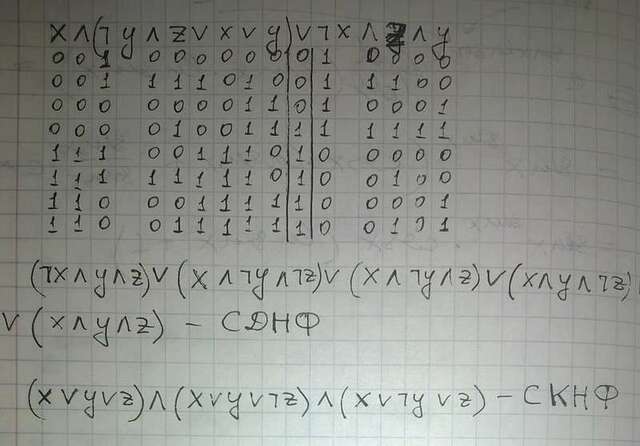 X∧(¬y∧z∨x∨y)∨¬x∧z∧y
0 0 1 0 0 0 0 0 0 0 1 0 0 0 0
0 0 1 1 1 1 0 1 0 0 1 1 1 0 0
0 0 0 0 0 0 0 1 1 0 1 0 0 0 1
0 0 0 0 1 0 0 1 1 1 1 1 1 1 1
1 1 1 0 0 1 1 1 0 1 0 0 0 0 0
1 1 1 1 1 1 1 1 0 1 0 0 1 0 0
1 1 0 0 0 1 1 1 1 1 0 0 0 0 1
1 1 0 0 1 1 1 1 1 1 0 0 1 0 1
(¬x∧y∧z)∨(x∧¬y∧¬z)∨(x∧¬y∧z)∨(x∧y∧¬z)
∨(x∧y∧z) - СДНФ
(x∨y∨z)∧(x∨y∨¬z)∧(x∨¬y∨z) - СКНФ